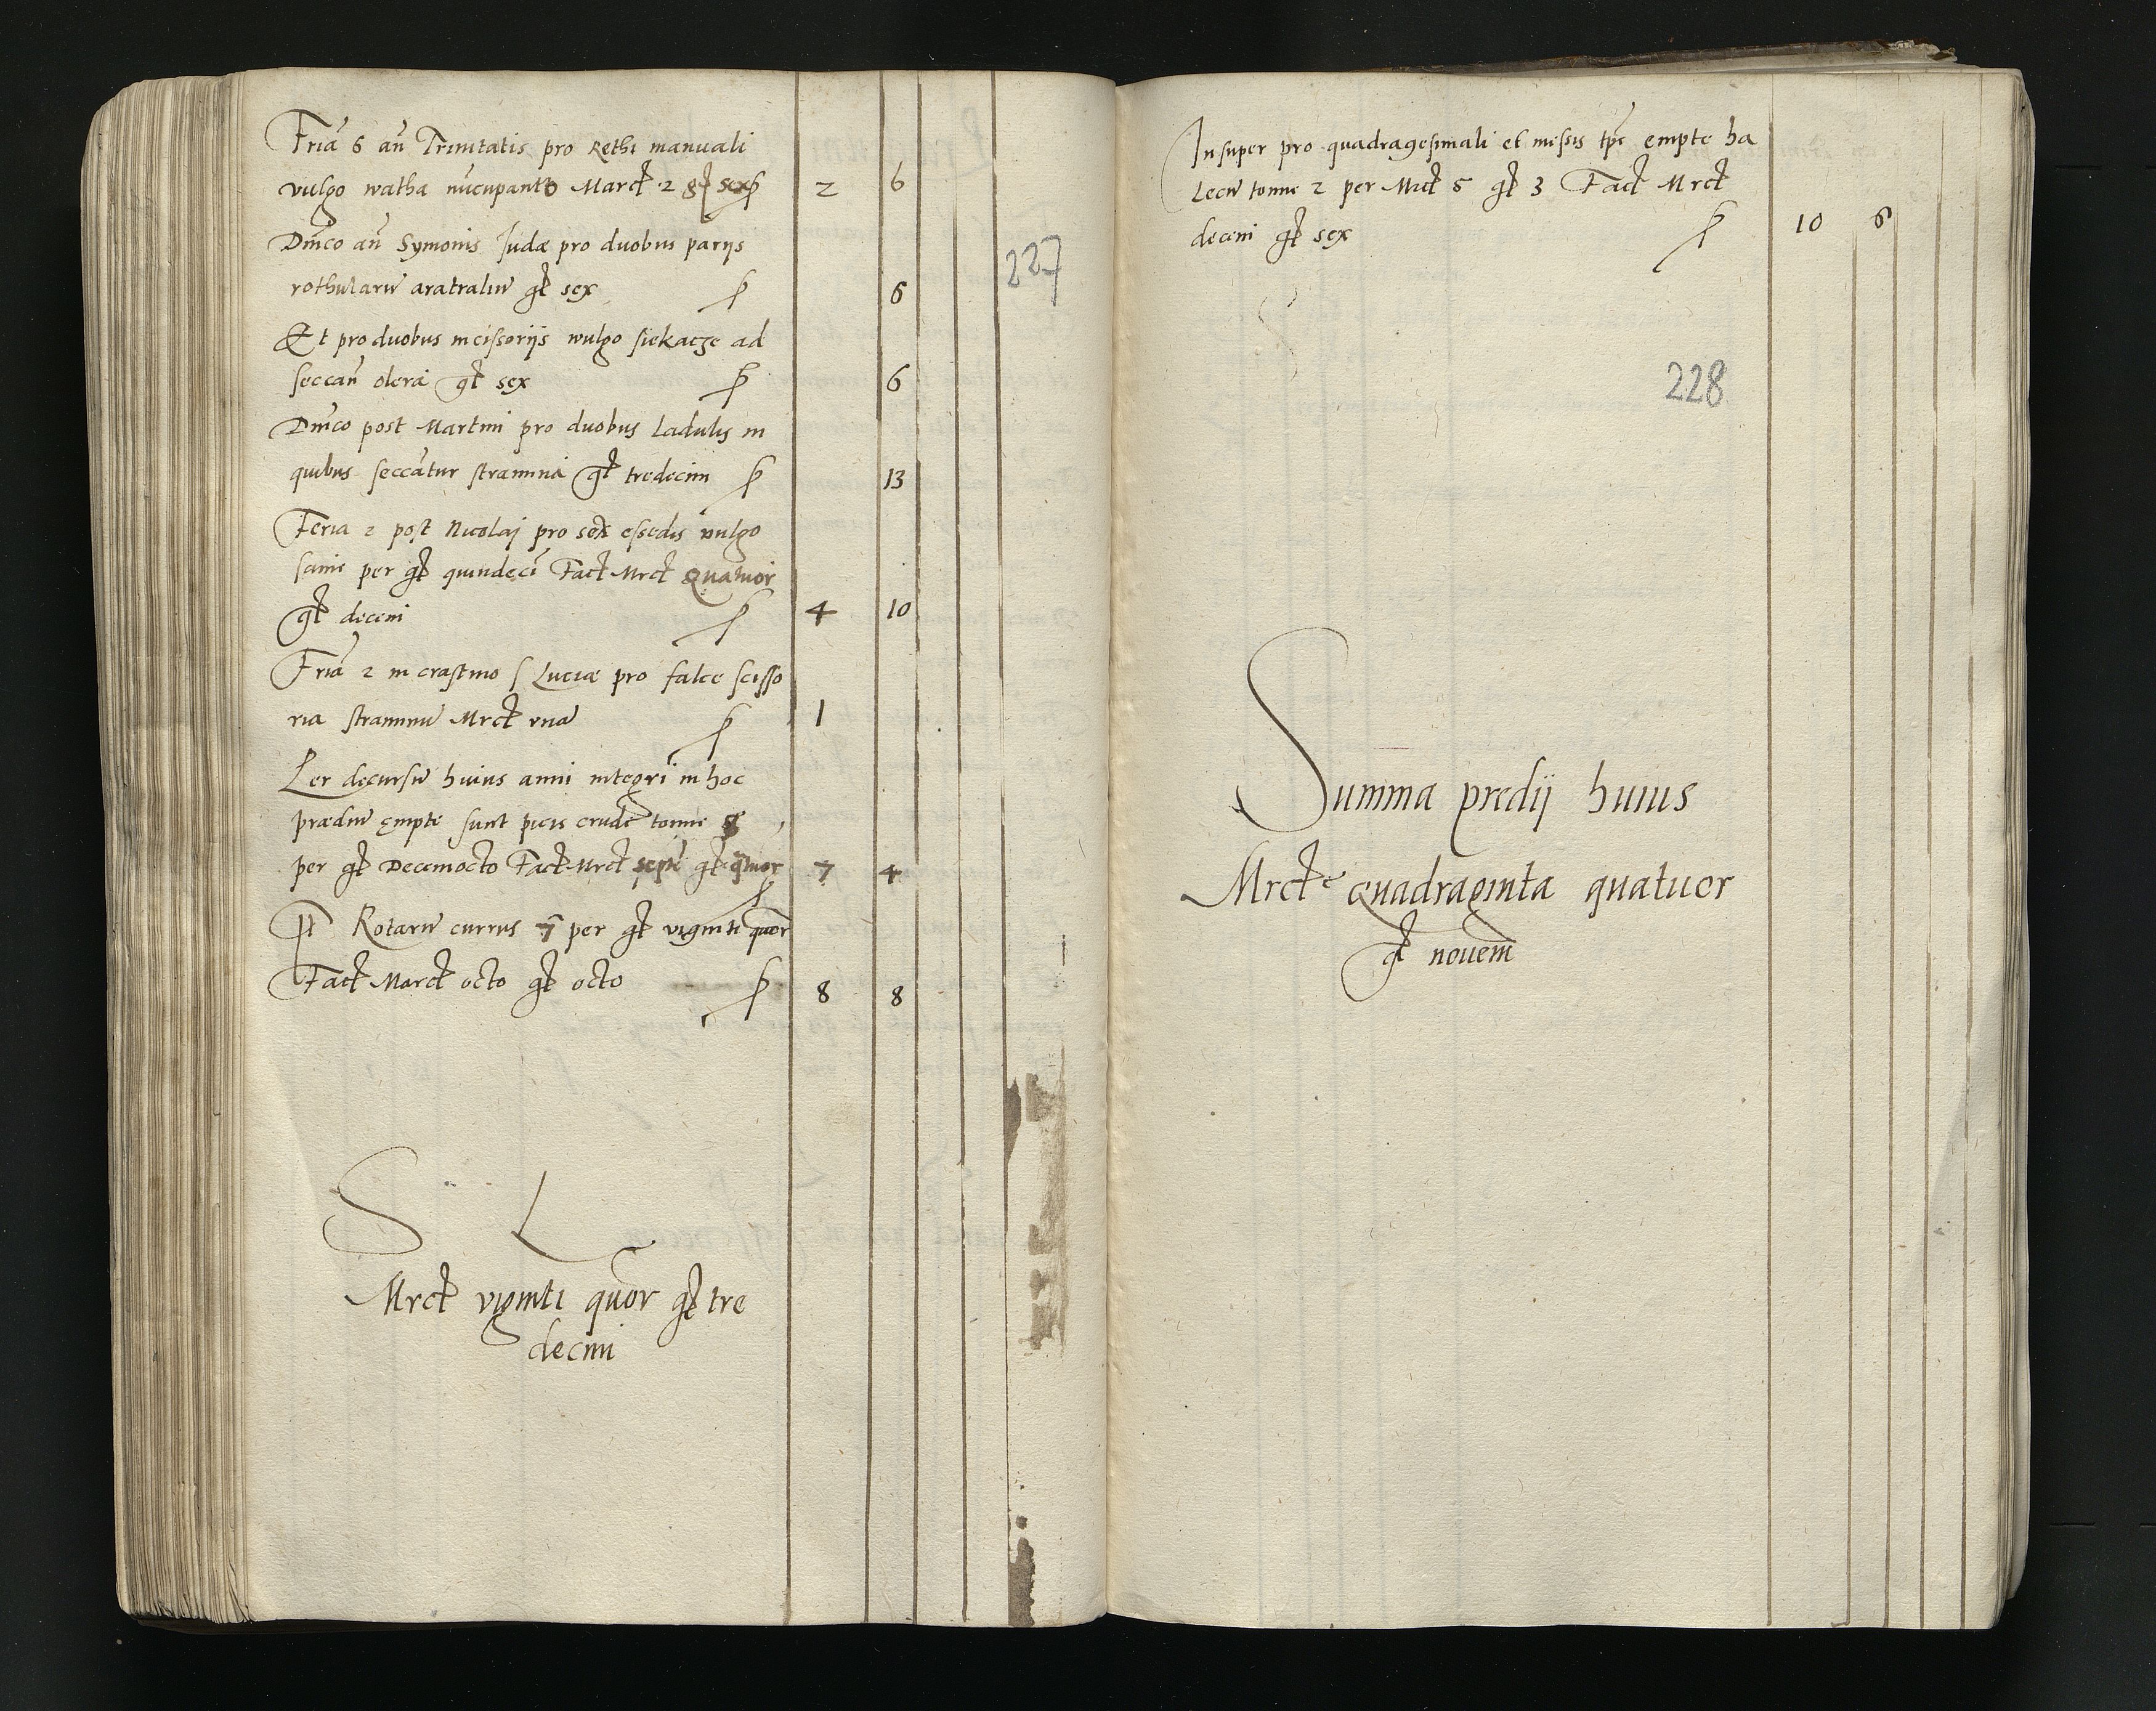 Fria 6 an Trinitatis pro Rethi manuali
vulgo watha nucupanto Marct 2 gt sex 2 6
Dnico an Symonis Judæ pro duobus parijs
rothularu aratraliu gt sex 6
Et pro duobus incissorijs wulgo siekacze ad
seccan olera gt sex 6
Dnico post Martini pro duobus Ladulis in
quibus seccatur stramina gt tredecim 13
Feria 2 post Nicolaj pro sex essedis vulgo
sanie per gt quindeci Fact Mrct quatuor
gt decem 4 10
Fria 2 in crastino S Luciæ pro falce scisso
ria straminu Mrct una 1
Per decursu huius anni integri in hoc
prædiu empte sunt picis crude tonne 8
per gt Decemocto Fact Mrct septe gt qtuor 7 4
It Rotaru currus 7 per gt viginti quor
Fact Marct octo gt octo 8 8
S L
Mrct viginti quor gt tre
decim
227
Insuper pro quadragesimali et messis tpe empte ha
Lecu tonne 2 per Mrct 5 gt 3 Fact Mrct
decem gt sex 10 6
228
Summa predij huius
Mrcte quadraginta quatuor
gt novem